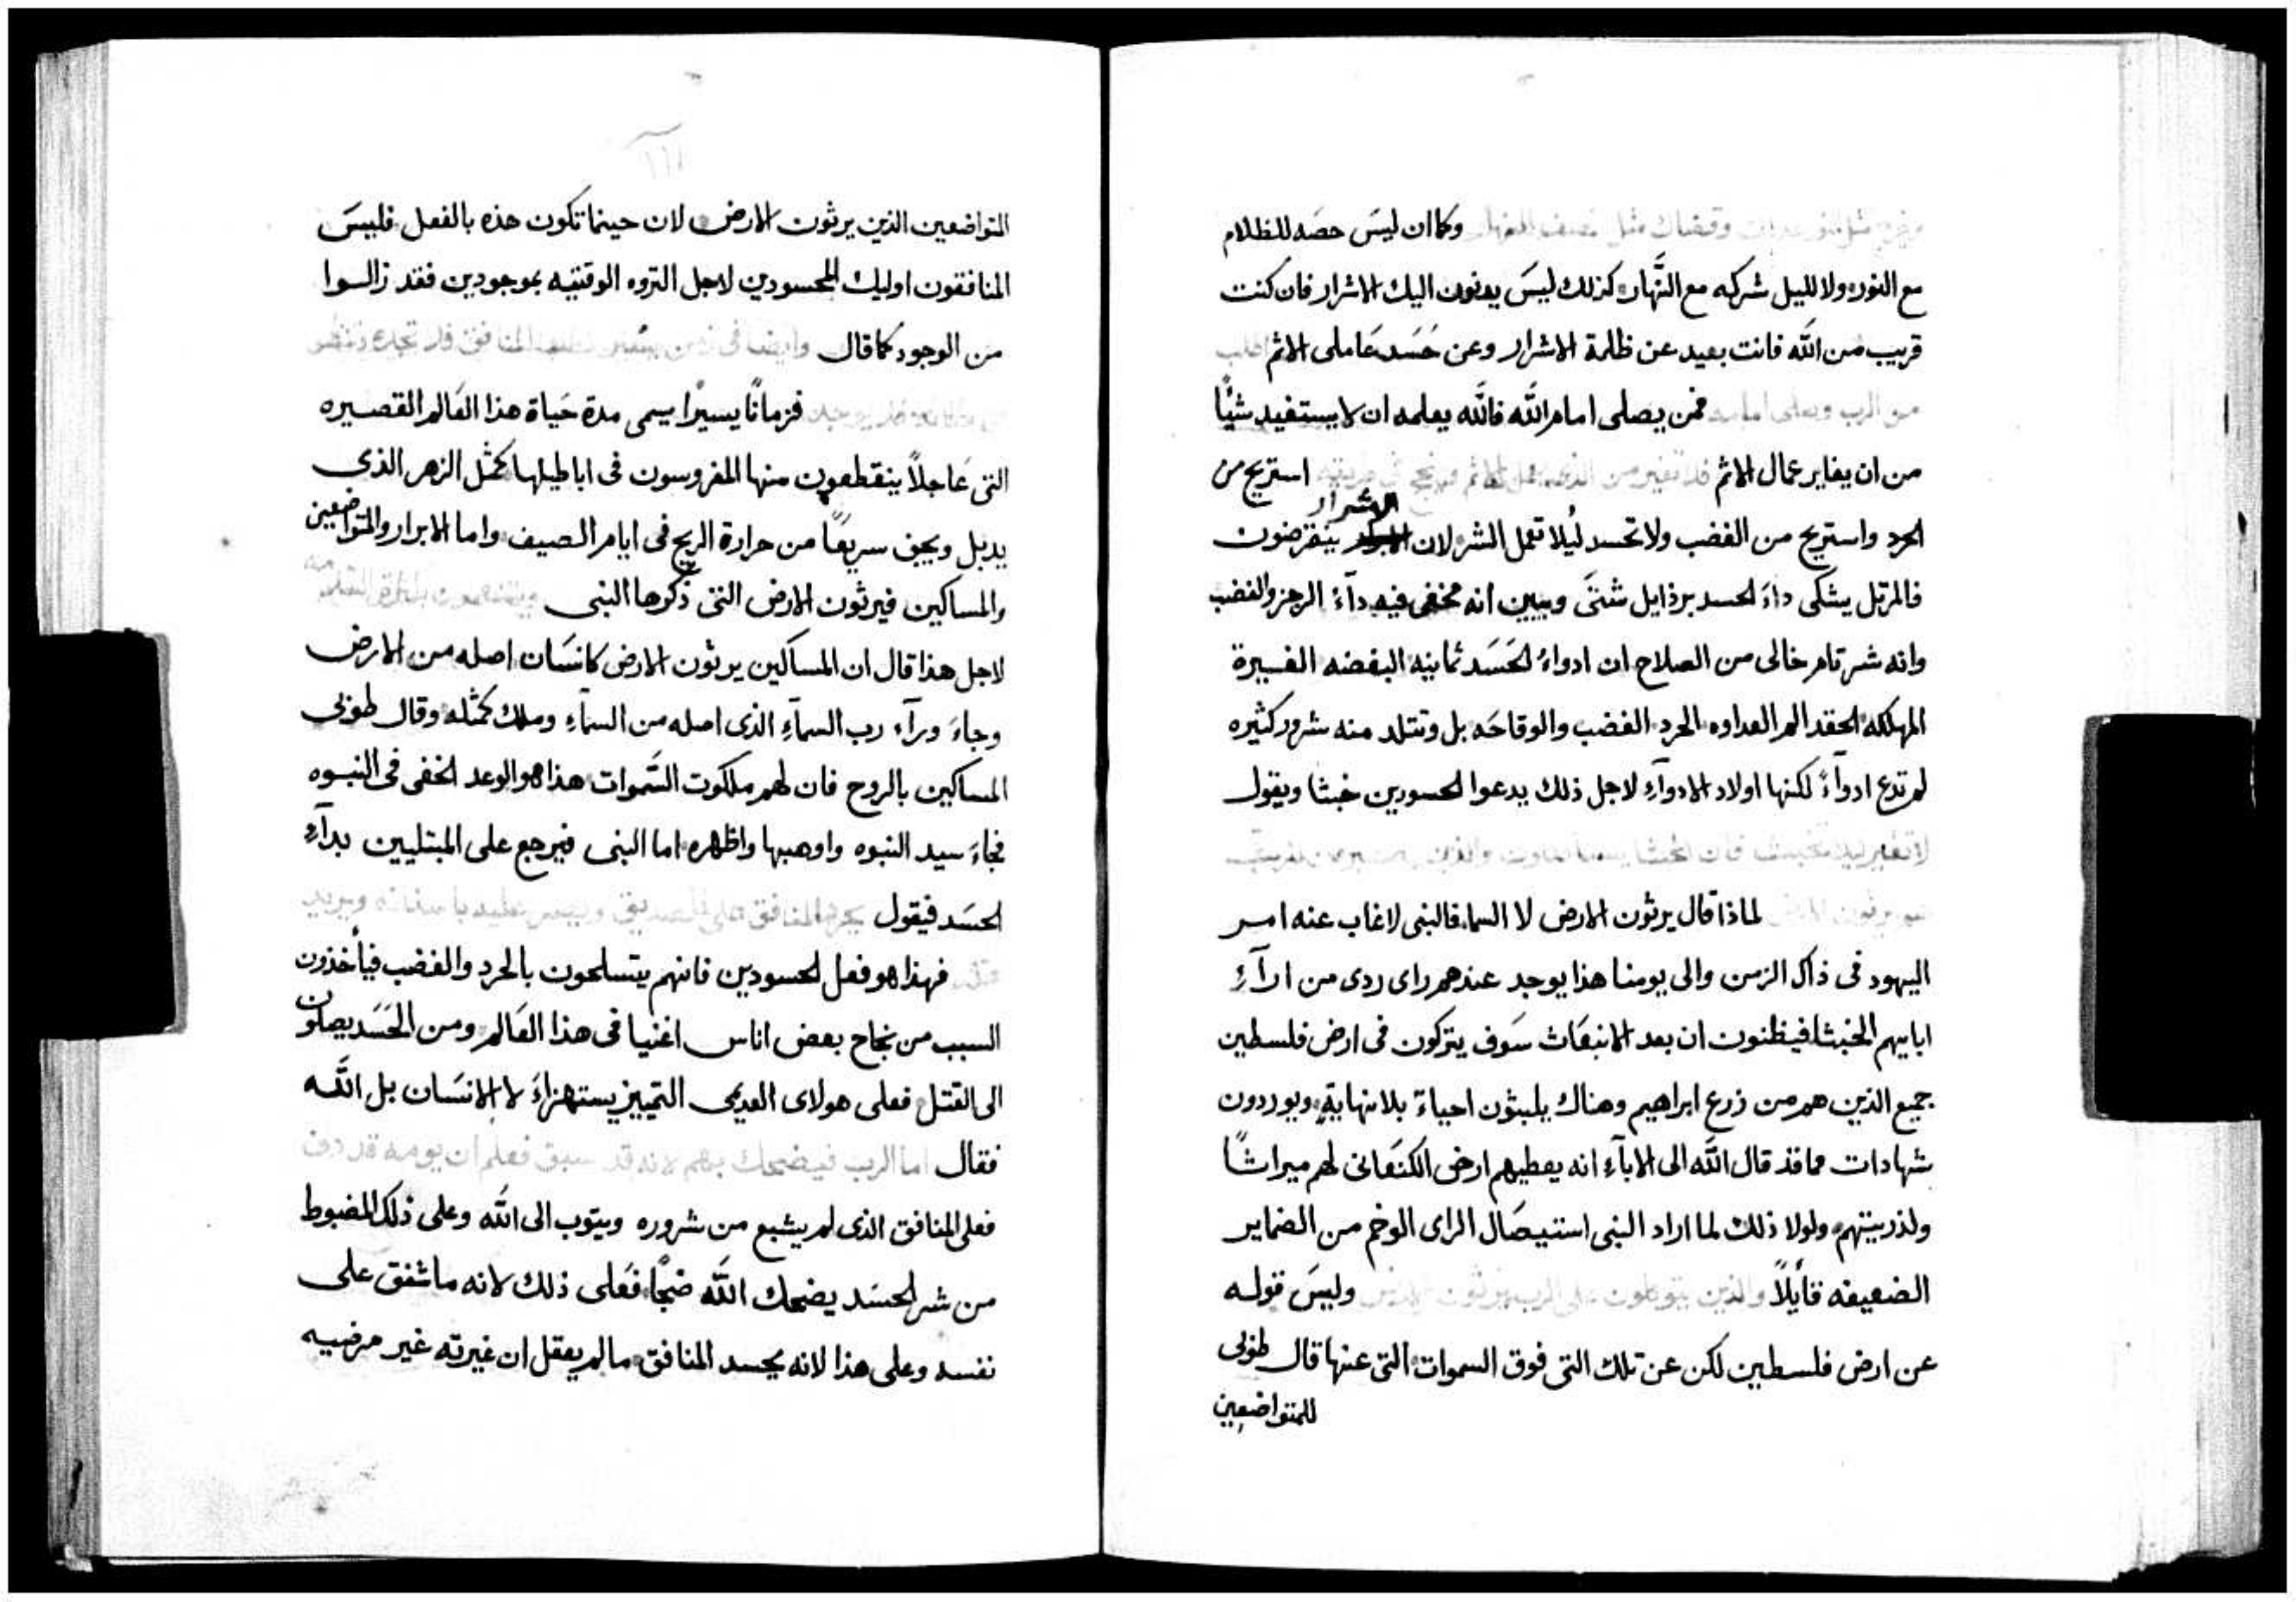 مثل النور وقضاك مثل نصف النهار وكما ان ليسَ حصَه للظلام
مع النور ولا لليل شركه مع النَّهار كذلك ليسَ يدنون اليك الاشرار فان كنت
قريب من الله فانت بعيد عن ظلمة الاشرار وعن حَسَد عَاملى الاثم
من الرب فمن يصلى امام الله فالله يعلمه ان لا يستفيد شيًا
من ان يغاير عمال الاثم استريح من
الحرد واستريح من الغضب ولا تحسد ليُلا تعمل الشر لان الاشرار ينقرضون
فالمرتل يشكى داءَ الحسد برذايل شتىَّ ويبيين انه مخفى فيه دآءُ الرجز والغضب
وانه شر تام خالى من الصلاح ان ادواءُ الحَسَد ثمانيه البغضه الغيرة
المهلكه الحقد الم العداوه الحرد الغضب والوقاحَه بل وتتلد منه شرور كثيره
لم تدع ادوآءً لكنها اولاد الادوآءِ لاجل ذلك يدعوا الحسودين خبثا ويقول
يرثون الارض لماذا قال يرثون الارض لا السما فالنبى لا غاب عنه امر
اليهود فى ذاك الزمن والى يومنا هذا يوجد عندهم راى ردى من ارآءِ
ابايهم الخبثا فيظنون ان بعد الانبعَاث سَوف يتركون فى ارض فلسطين
جميع الذين هم من زرع ابراهيم وهناك يلبثون احياءً بلا نهاية ويوردون
شهادات مما قد قال الله الى الابآءِ انه يعطيهم ارض الكنعَانى لهم ميراثًا
ولذريتهم ولولا ذلك لما اراد النبى استيصَال الراى الوخم من الضماير
الضعيفه قايًلاً والذين يتوكلون على الرب يرثون الارض وليسَ قوله
عن ارض فلسطين لكن عن تلك التى فوق السموات التى عنها قال طوبى
للمتواضعين
المتواضعين الذين يرثون الارض لان حينما تكون هذه بالفعل فليسَ
المنافقون اوليك المحسودين لاجل الثروه الوقتيه بموجودين فقد زالوا
من الوجود كما قال وايضا فى
فزمانًا يسيرًا يسمى مدة حَياة هذا العَالم القصيره
التى عَاجلاً ينقطعون منها المغروسون فى اباطيلها كمثل الزهر الذى
يدبل ويجف سريعًا من حرارة الريح فى ايام الصيف واما الابرار والمتواضعين
والمساكين فيرثون الارض التى ذكرها النبى
لاجل هذا قال ان المساكين يرثون الارض كانسَان اصله من الارض
وجاءَ ورآء رب السمآءِ الذى اصله من السمآءِ وملك كمثله وقال طوبى
المساكين بالروح فان لهم ملكوت السَّموات هذا هو الوعد الخفى فى النبوه
فجاءَ سيد النبوه واوهبها واظهره اما النبى فيرجع على المبتليين بدآءِ
الحسَد فيقول يحرد المنافق على الصديق ويصر عليه باسنانه ويريد
فهذا هو فعل الحسودين فانهم يتسلحون بالحرد والغضب فيأخذون
السبب من نجاح بعض اناس اغنيا فى هذا العَالم ومن الحَسَد يصلون
الى القتل فعلى هولاى العديمى التمييز يستهزاءَ لا الانسَان بل الله
فقال اما الرب فيضحك بهم لانه قد سبق فعلم ان يومه قد دنى
فعلى المنافق الذى لم يشبع من شروره ويتوب الى الله وعلى ذلك المضبوط
من شر الحسَد يضحك الله ضحكًا فعَلى ذلك لانه ما شفق على
نفسه وعلى هذا لانه يحسد المنافق ما لم يعقل ان غيرته غير مرضيه